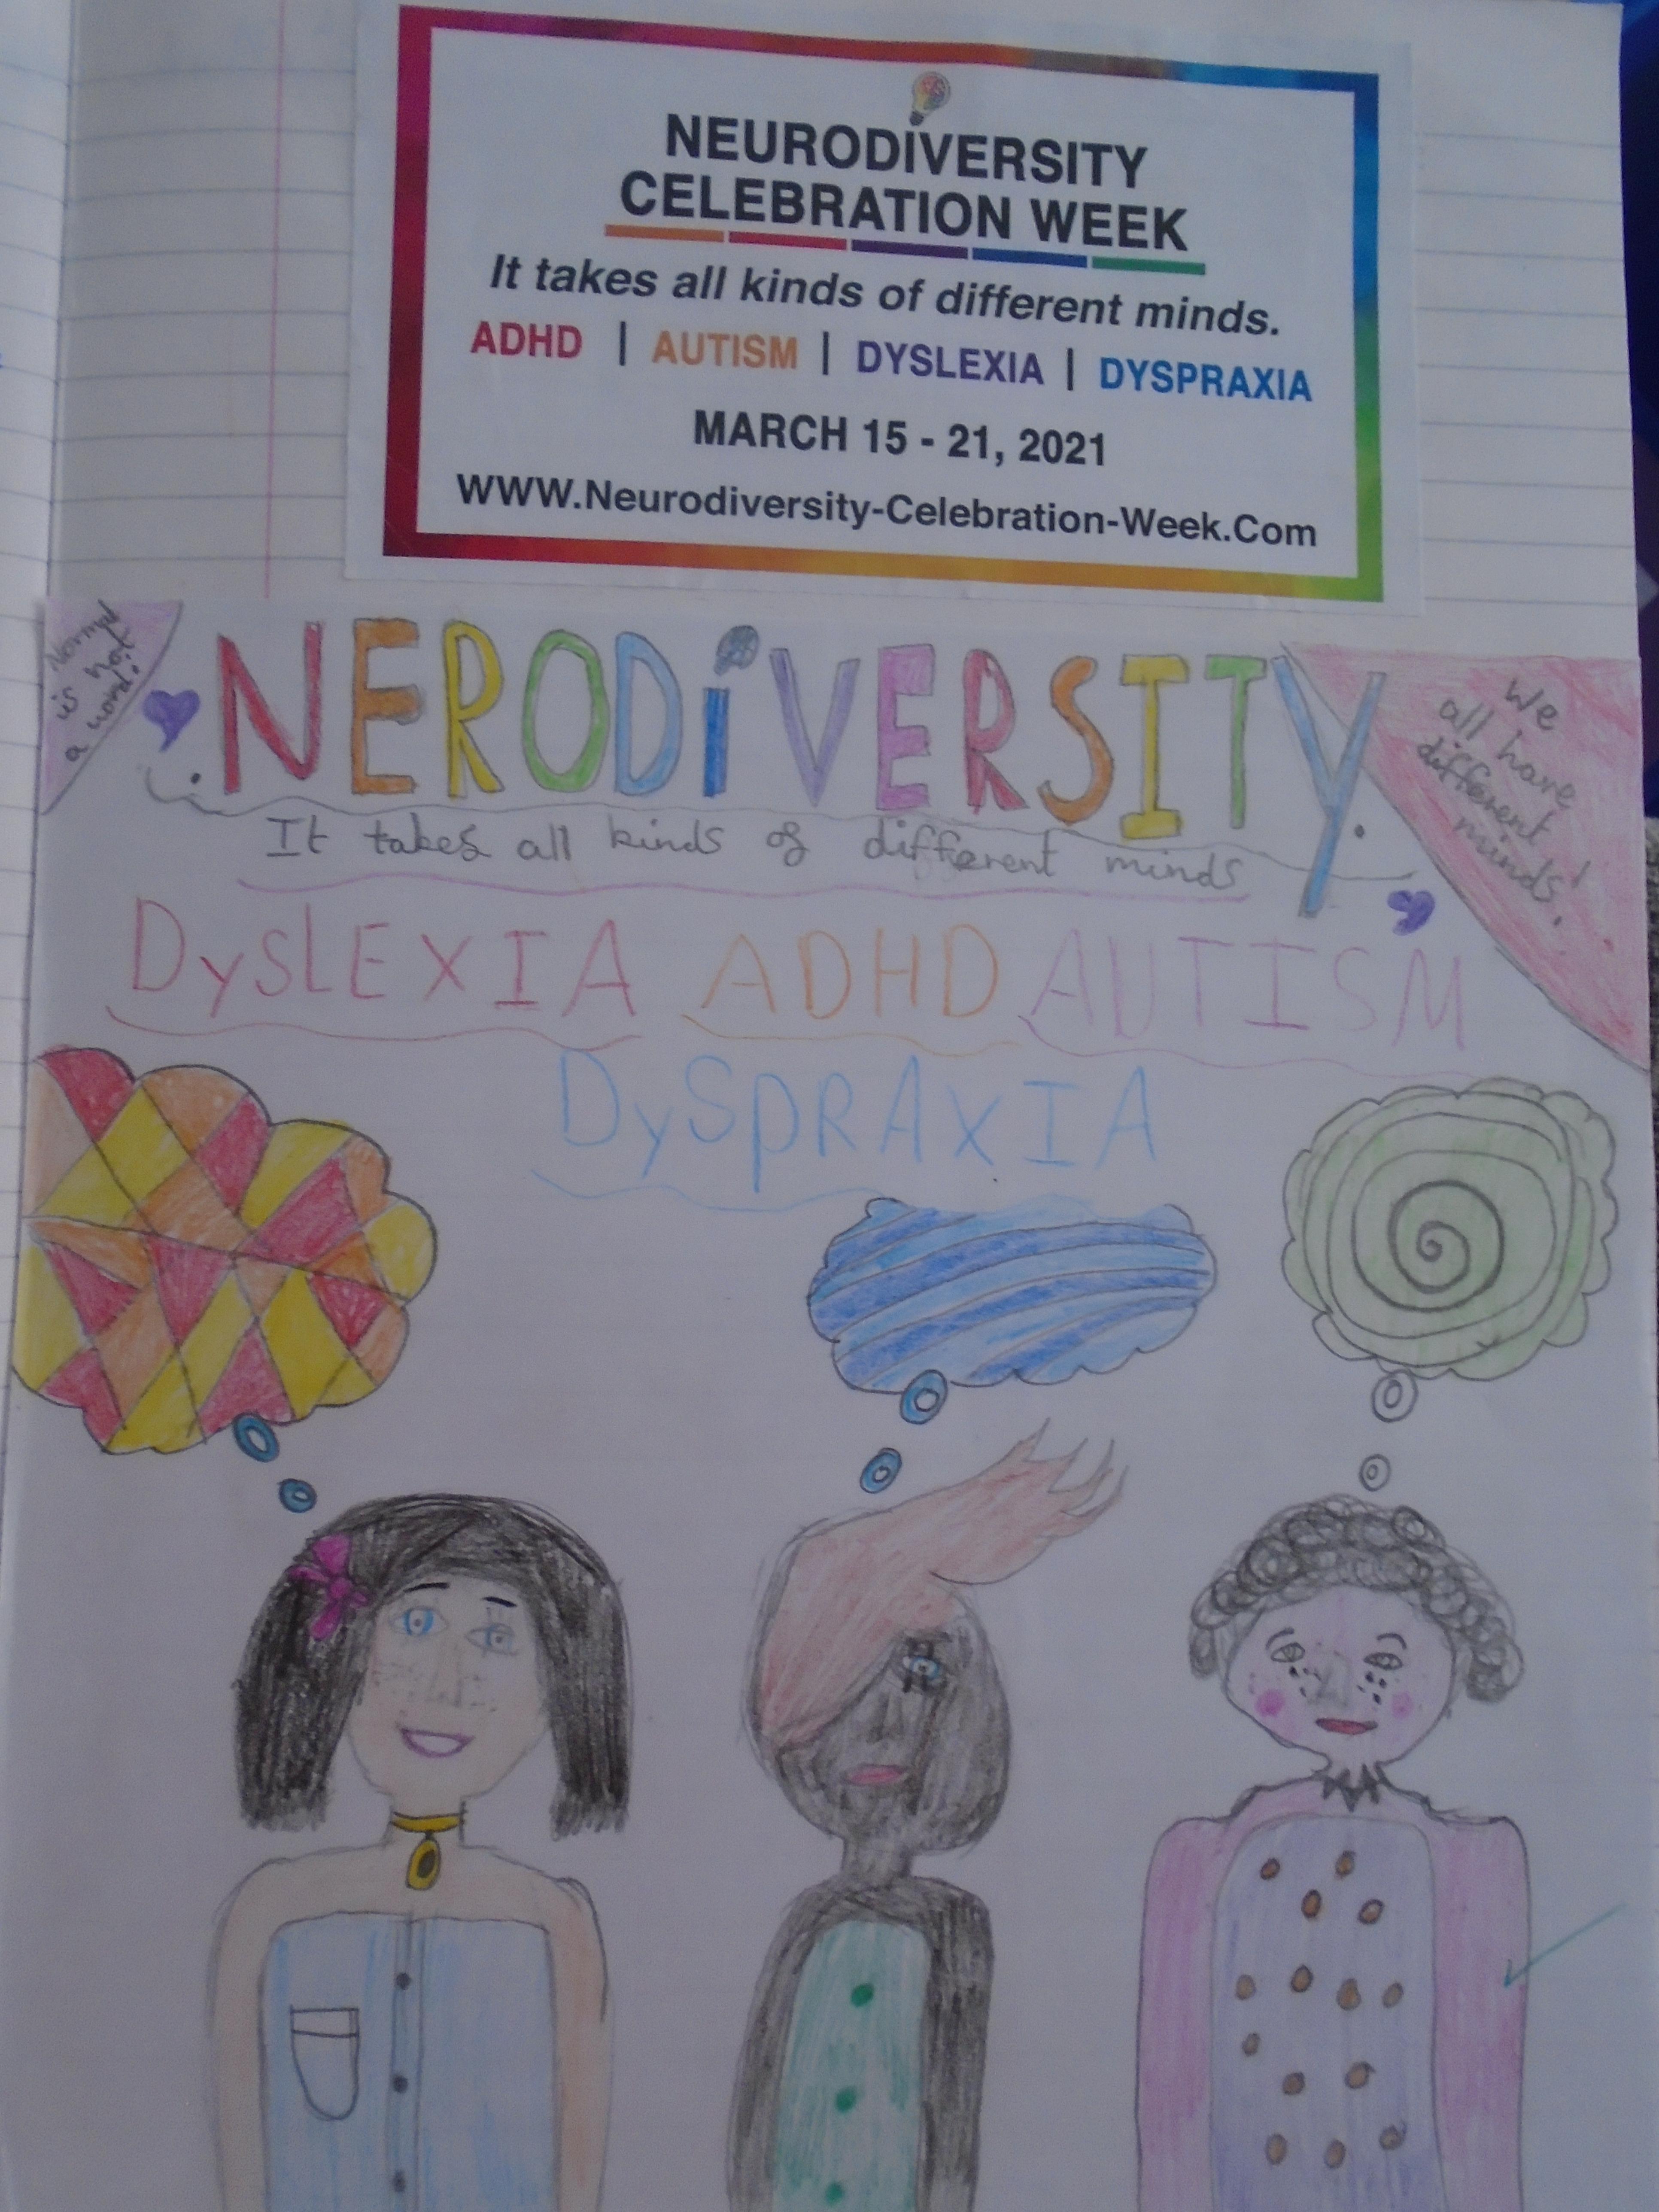 NEURODIVERSITY
CELEBRATION WEEK
It takes all kinds of different minds.
ADHD | AUTISM | DYSLEXIA | DYSPRAXIA
MARCH 15 - 21, 2021
WWW.Neurodiversity-Celebration-Week.Com
Normal
is not
a word!
NERODiVERSITY
We
all have
different
minds!
It takes all kinds of different minds
DySLEXIA ADHD AUTISM
DySpRAxIA